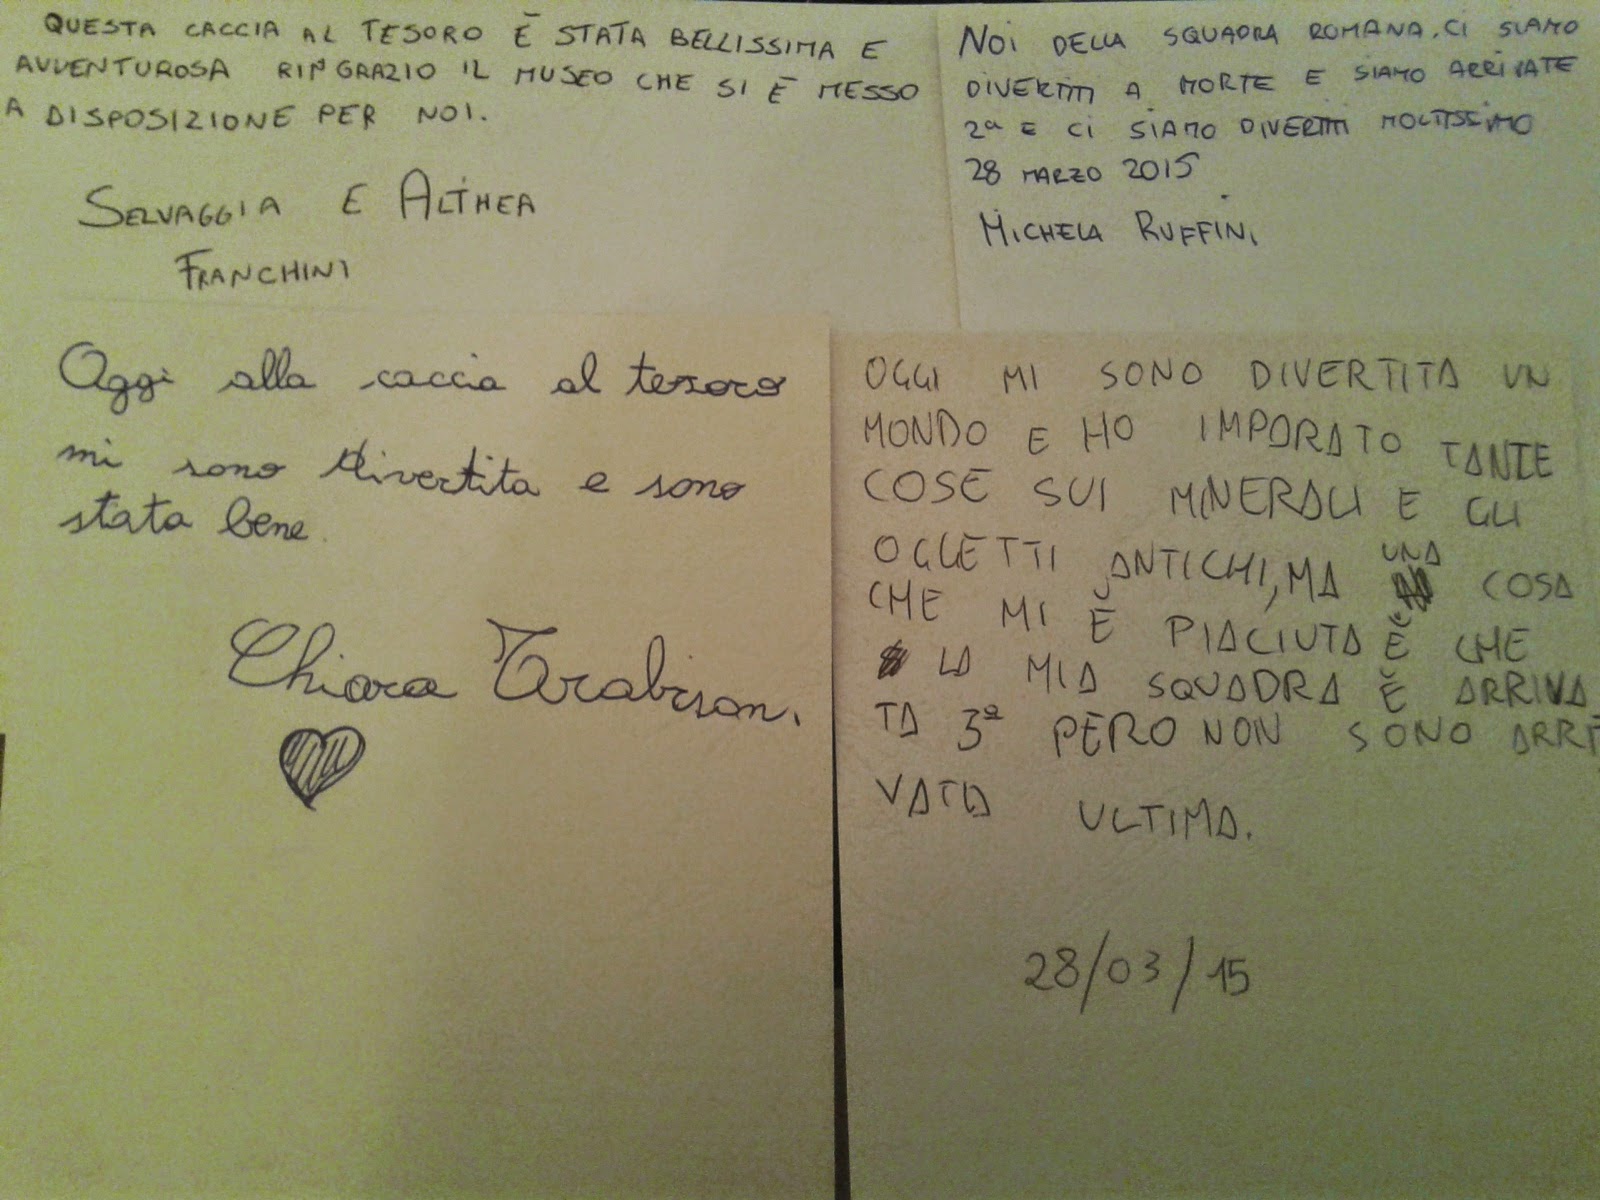 QUESTA CACCIA AL TESORO È STATA BELLISSIMA E
AVVENTUROSA RINGRAZIO IL MUSEO CHE SI È MESSO
A DISPOSIZIONE PER NOI.
SELVAGGIA E ALTHEA
FRANCHINI
NOI DELLA SQUADRA ROMANA. CI SIAMO
DIVERTITI A MORTE E SIAMO ARRIVATE
2ª E CI SIAMO DIVERTITI MOLTISSIMO
28 MARZO 2015
MICHELA RUFFINI
Oggi alla caccia al tesoro
mi sono divertita e sono
stata bene.
Chiara Trabison.
OGGI MI SONO DIVERTITA UN
MONDO E HO IMPARATO TANTE
COSE SUI MINERALI E GLI
OGGETTI ANTICHI, MA UNA COSA
CHE MI È PIACIUTA È CHE
LA MIA SQUADRA È ARRIVA
TA 3ª PERO NON SONO ARRI
VATA ULTIMA.
28/03/15